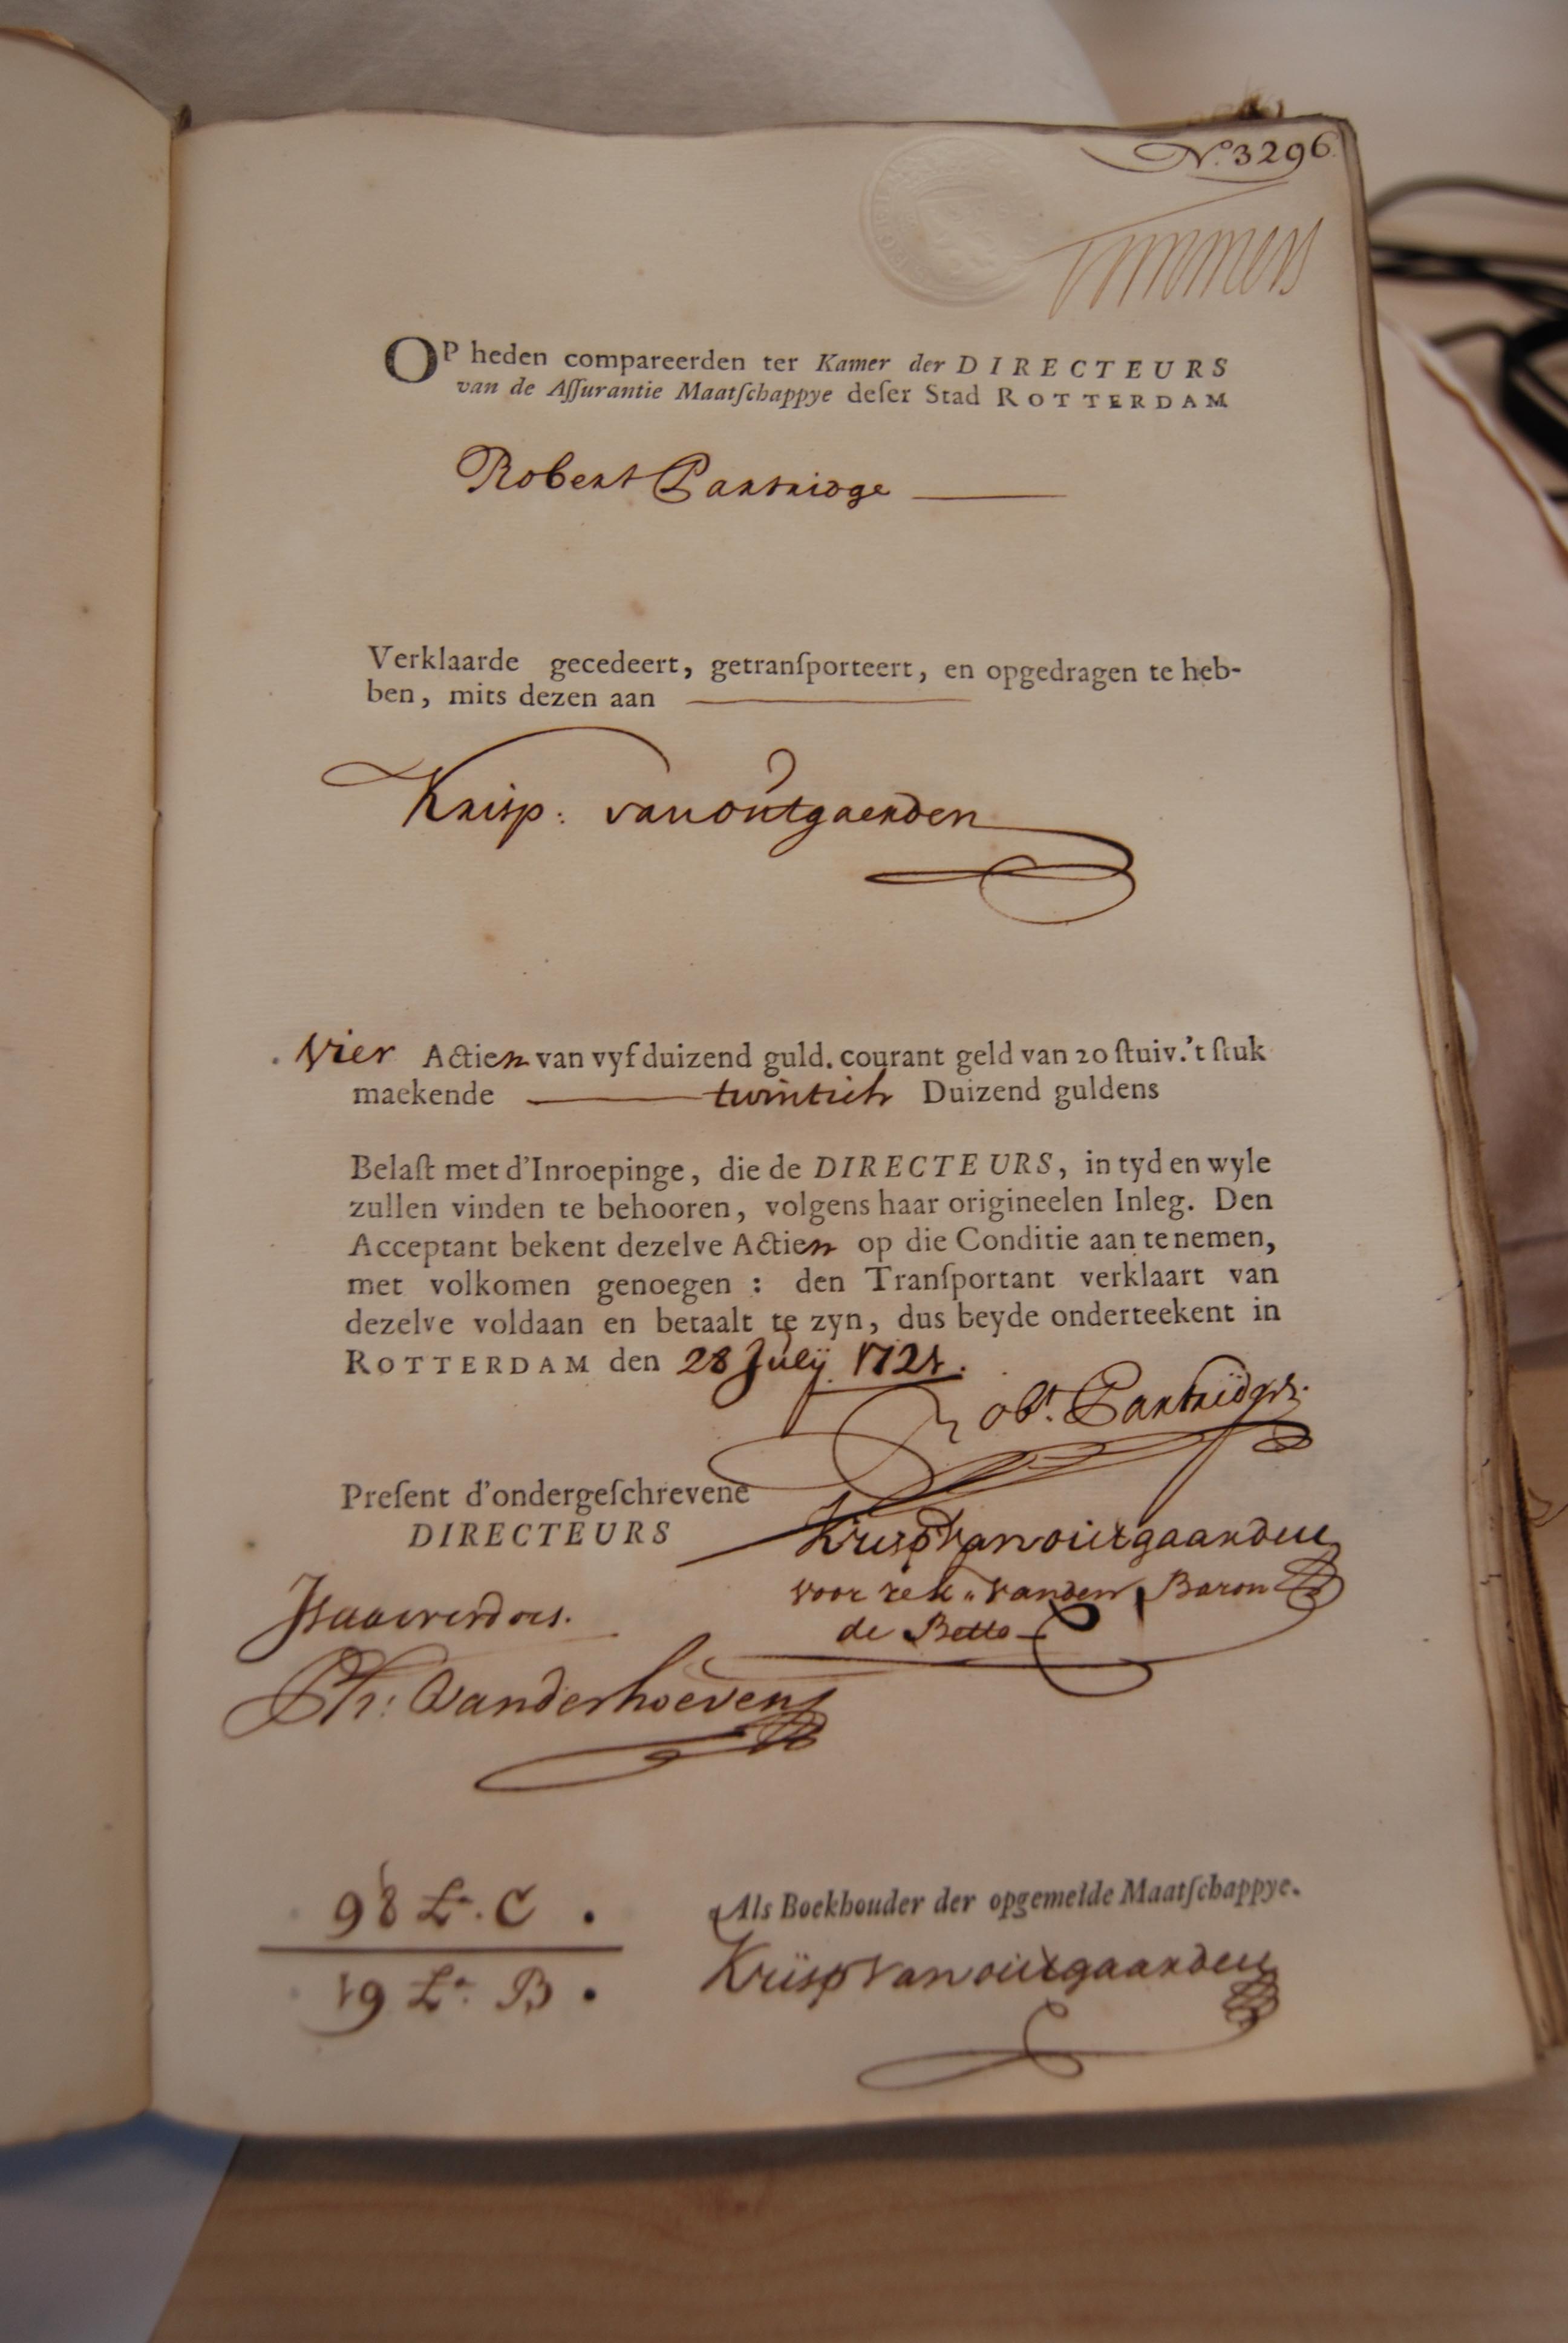 No. 3296
Timmers
OP heden compareerden ter Kamer der DIRECTEURS
van de Aſſurantie Maatſchappye deſer Stad ROTTERDAM
Robert Partridge
Verklaarde gecedeert, getranſporteert, en opgedragen te heb-
ben, mits dezen aan
Krisp: van outgaerden
Vier Actien van vyf duizend guld. courant geld van 20 ſtuiv. 't ſtuk
maekende twintich Duizend guldens
Belaſt met d'Inroepinge, die de DIRECTEURS, in tyd en wyle
zullen vinden te behooren, volgens haar origineelen Inleg. Den
Acceptant bekent dezelve Actien op die Conditie aan te nemen,
met volkomen genoegen : den Tranſportant verklaart van
dezelve voldaan en betaalt te zyn, dus beyde onderteekent in
ROTTERDAM den 28 July 1721.
Robt. Partridge.
Preſent d'ondergeſchrevene
DIRECTEURS
Krisp van outgaarden
voor rek" vanden Baron
de Betto
Ph: Vanderhoeven
98 La. C .
19 La. B .
Als Boekhouder der opgemelde Maatſchappye.
Krisp van outgaarden